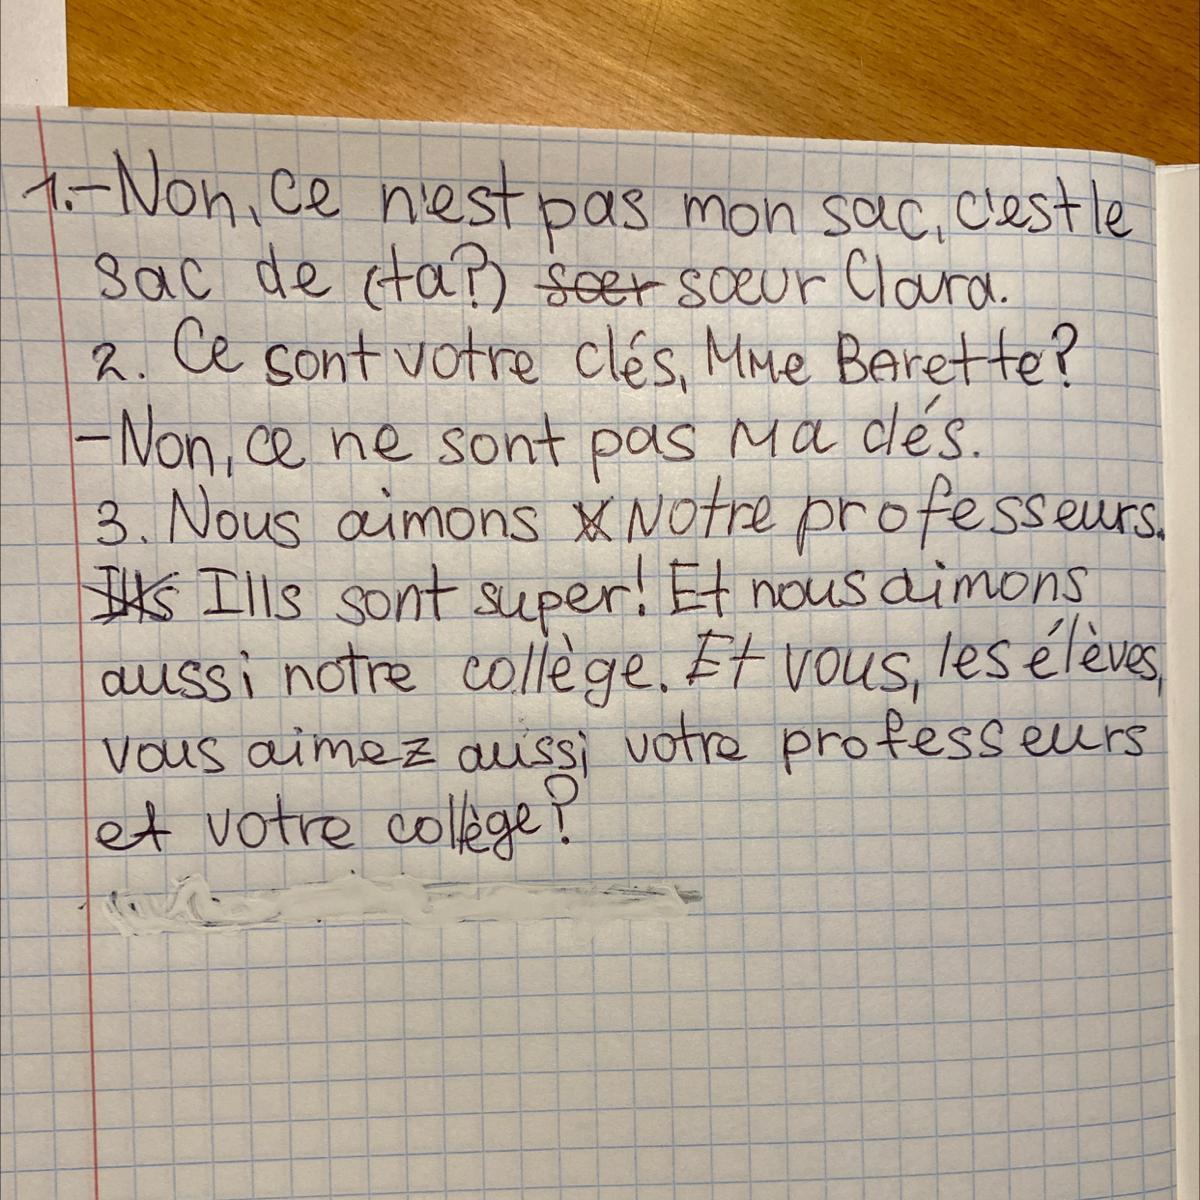 1. – Non, ce n'est pas mon sac, c'est le
sac de (ta?) soer sœur Clara.
2. Ce sont votre clés, Mme Barette?
– Non, ce ne sont pas ma clés.
3. Nous aimons notre professeurs.
Ills sont super! Et nous aimons
aussi notre collège. Et vous, les élèves,
vous aimez aussi votre professeurs
et votre collège?